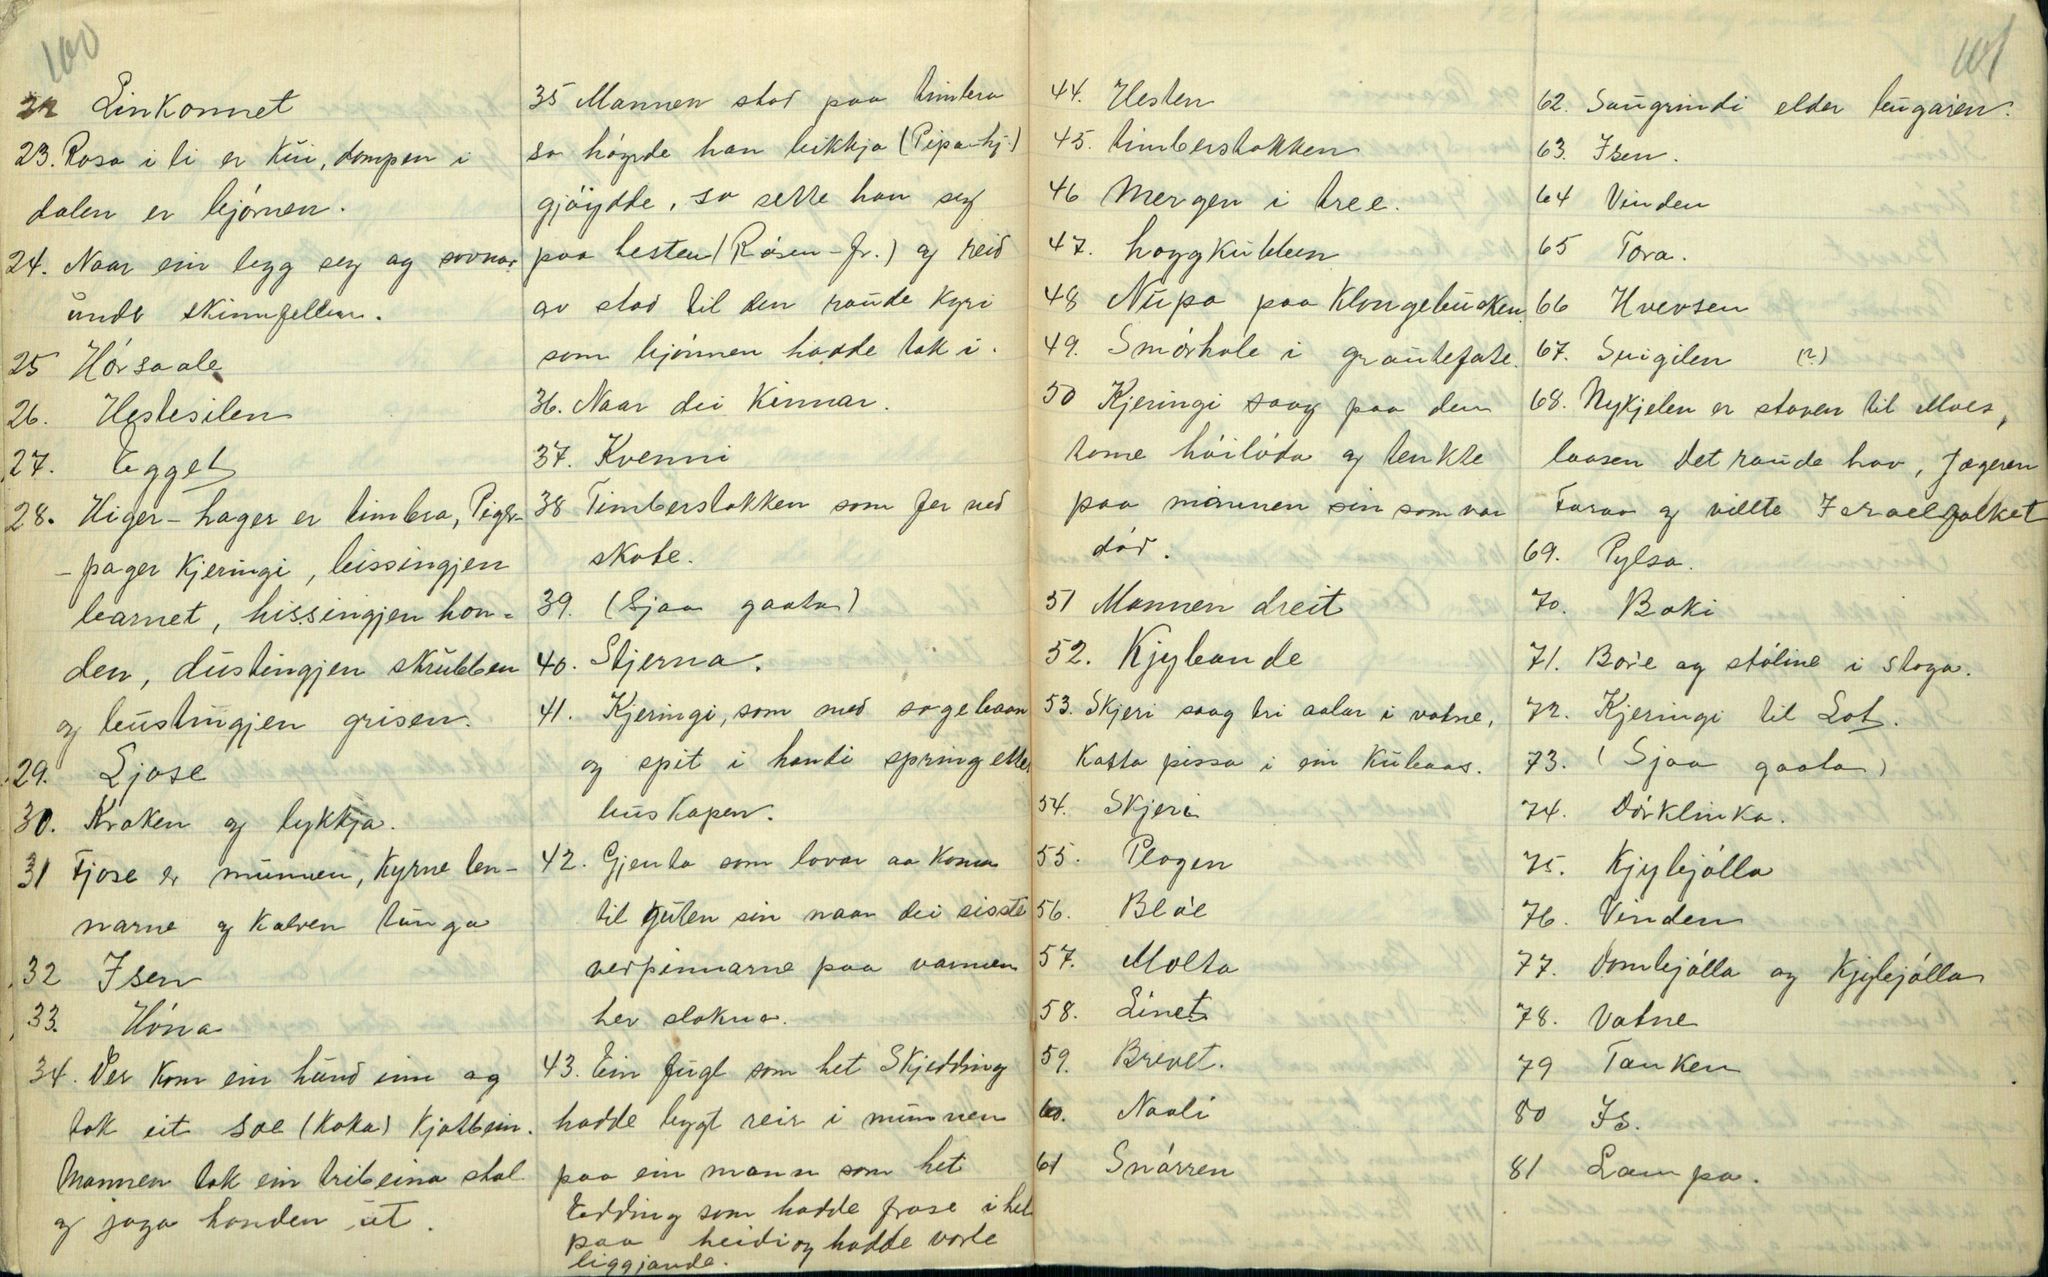 100
22 Linkonnet
23. Rosa i li er Kui, dompen i
dalen er bjørnen.
24. Naar ein legg seg og sovnar
unde skinnfellen.
25 Hørsaale
26. Hestesilen
27. Egget
28. Higer-hager er timbra, Piger-
-pager Kjeringi, bissingjen
barnet, hissingjen hon-
den, dustingjen skrubben
og bustingjen grisen.
29. Ljose
30. Kroken og lykkja.
31 Fjose er munnen, Kyrne ten-
narne og Kalven tunga
32 Isen
33. Høna
34. Der kom ein hund inn og
tok eit soe (Koka) Kjøtbein.
Mannen tok ein tribeina stol
og joga honden ut.
35 Mannen stod paa timbra
so høyrde han bikkja (Pipa-hj.)
gjøydde, so sette han seg
paa hesten (Røsen-fr.) og reid
av stad til den raude Kyri
som bjønnen hadde tok i.
36. Naar dei Kinnar.
37. Kvenni
38 Timberstokken som fer ned
skote.
39. (Sjaa gaata)
40. Stjerna.
41. Kjeringi, som med sogebaan
og spit i handi spring etter
buskapen.
42. Gjenta som lovar aa Koma
til guten sin naar dei siste
vedpinnarne paa varmen
her slokna.
43. Ein fugl som het Skjedding
hadde bygt reir i munnen
paa ein mann som het
Edding som hadde frose i hel
paa heidi og hadde vorte
liggjande.
101
44. Hesten
45. timberstokken
46 Mergen i tree.
47. hoggkubben
48 Nupa paa Klongebusken.
49. Smørhole i grautefate.
50 Kjeringi saag paa den
tome høiløda og tenkte
paa mannen sin som var
død.
51 Mannen dreit
52. Kjybande
53. Skjeri saag tri aalar i vatne,
Katta pissa i ein Kubaas.
54. Skjeri
55. Plogen
56. Blöe
57. Molta
58. Linet
59. Brevet.
60. Naali
61 Snørren
62. Saugrindi elder bugaren.
63. Isen.
64 Vinden
65 Tora.
66 Hvevsen
67. Suigilen (?)
68. Nykjelen er staven til Moes,
laasen Det raude hav, Jægeren
Farao og villte Israelfolket
69. Pylsa.
70. Boki
71. Bore og stoline i stoga.
72. Kjeringi til Lot.
73. (Sjaa gaata)
74. Dørklinka.
75. Kjybjølla
76. Vinden
77. Dombjølla og Kjybjølla
78. Vatne
79 Tanken
80 Is.
81 Lampa.